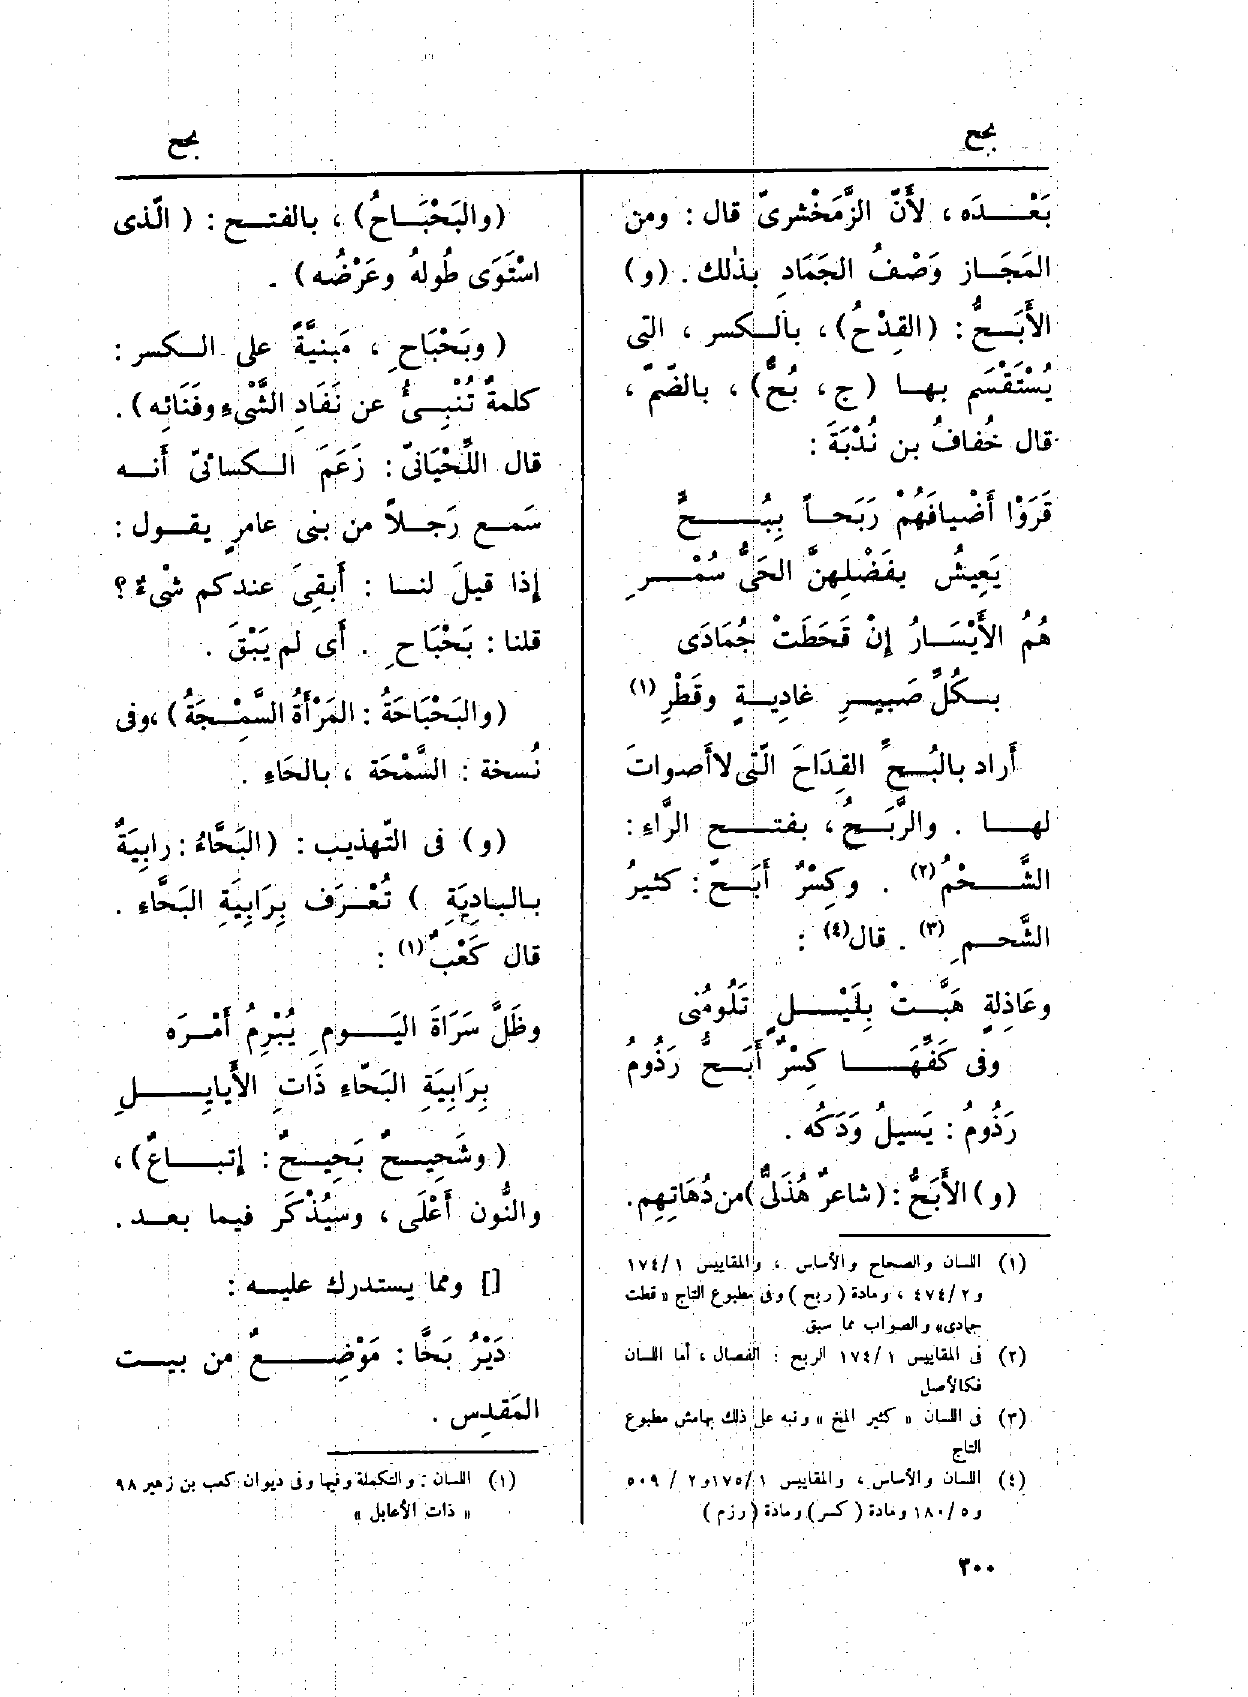 بحح
بحح
بَعْـــدَه ، لأَنّ الزَّمَخْشرىّ قال : ومن
المَجَـاز وَصْفُ الجَمَادِ بذٰلك . (و)
الأَبَــحُّ : (القِدْحُ)، بالـكسر ، التى
يُسْتَقْسَم بهـا (ج، بُحٌّ)، بالضّمّ ،
قال خُفافُ بن نُدْبَةَ :
قَرَوْا أَضْيافَهُمْ رَبَحـاً بِبُـــحٍّ
يَعِيشُ بفَضْلِهنَّ الحَىُّ سُمْــرِ
هُمُ الأَيْسَـارُ إِنْ قَحَطَتْ جُمَادَى
بـكُلِّ صَبيـرِ غادِيـةٍ وقَطْرِ (١)
أَراد بالبُــحِّ القِدَاحَ الّتى لا أَصواتَ
لهـــا . والرَّبَــحُ، بفتـــح الرَّاءِ :
الشَّـــحْمُ (٢) . وكِسْرٌ أَبَــحّ : كثيرُ
الشَّحـمِ (٣) . قال (٤) :
وعَاذِلةٍ هَبَّـتْ بِلَيْـــلٍ تَلُومُنى
وفى كَفِّهَـــا كِسْرٌ أَبَــحُّ رَذُومُ
رَذُومُ : يَسيلُ وَدَكُه .
(و) الأَبَحُّ : (شاعرٌ هُذَلىٌّ) من دُهَاتِهِم.
(١) اللسان والصحاح والأساس ، والمقاييس ١٧٤/١
و ٤٧٤/٢ ، ومادة (ربح) وفى مطبوع التاج « قطت
جمادى» والصواب مما سبق
(٢) فى المقاييس ١٧٤/١ الربح : الفصال ، أما اللسان
فكالأصل
(٣) فى اللسان « كثير المخ » ونبه على ذلك بهامش مطبوع
التاج
(٤) اللسان والأساس ، والمقاييس ١٧٥/١ و ٢ / ٥٠٩
و ١٨٠/٥ ومادة (كسر) ومادة (رزم)
(والبَحْبَـاحُ) ، بالفتــح : ( الّذى
اسْتَوَى طُولهُ وعَرْضُه ) .
( وبَحْبَاحِ ، مَبنيَّةً على الـكسر :
كلمةٌ تُنْبِـىُٔ عن نَفَادِ الشَّىْءِ وفَنَائِه ) .
قال اللِّحْيَانىّ : زَعَمَ الـكسائىّ أَنـه
سَمـع رَجـلاً من بنى عامرٍ يقـول :
إِذا قيلَ لنـا : أَبقِىَ عندكم شىْءٌ ؟
قلنا : بَحْبَاحِ . أَى لم يَبْقَ .
(والبَحْبَاحَةُ : المَرْأَةُ السَّمْـجَةُ)، وفى
نُسخة : السَّمْحَة ، بالحَاءِ .
(و) فى التّهذيب : (البَحَّاءُ : رابِيَةٌ
بالبادِيَةِ ) تُعْـرَف بِرَابِيَةِ البَحَّاءِ .
قال كَعْبٌ (١) :
وظَلَّ سَرَاةَ اليَـومِ يُبْرِمُ أَمْـرَه
بِرَابِيَةِ البَحّاءِ ذَاتِ الأَيايِـــلِ
( وشَحِيـحٌ بَحِيـحٌ : إِتبـاعٌ ) ،
والنُّون أَعْلَى ، وسيُذْكَر فيما بعـد .
[] ومما يستدرك عليـه :
دَيْرُ بَحَّا : مَوْضِـــعٌ من بيـت
المَقدِس .
(١) اللسان : والتكملة وفيها وفى ديوان كعب بن زهير ٩٨
« ذات الأعابل »
٣٠٠